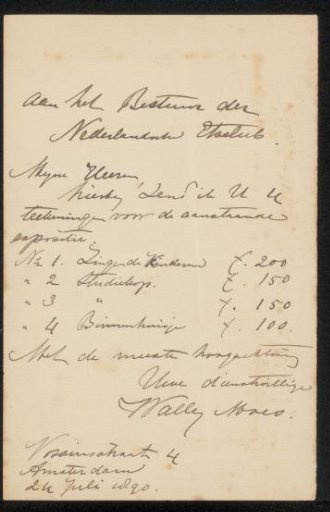 Aan het Bestuur der
Nederlandsche Etsclub.
Mijne Heeren,
hierby zend ik U 4
teekeningen voor de aanstaande
expositie,
No 1. Zingende Kinderen f. 200
" 2 Studiekop. f. 150
" 3 " f. 150
" 4 Binnenhuisje f. 100.
Met de meeste hoogachting
Uwe dienstwillige
Wally Moes.
Vossiusstraat 4
Amsterdam
24 Juli 1890.